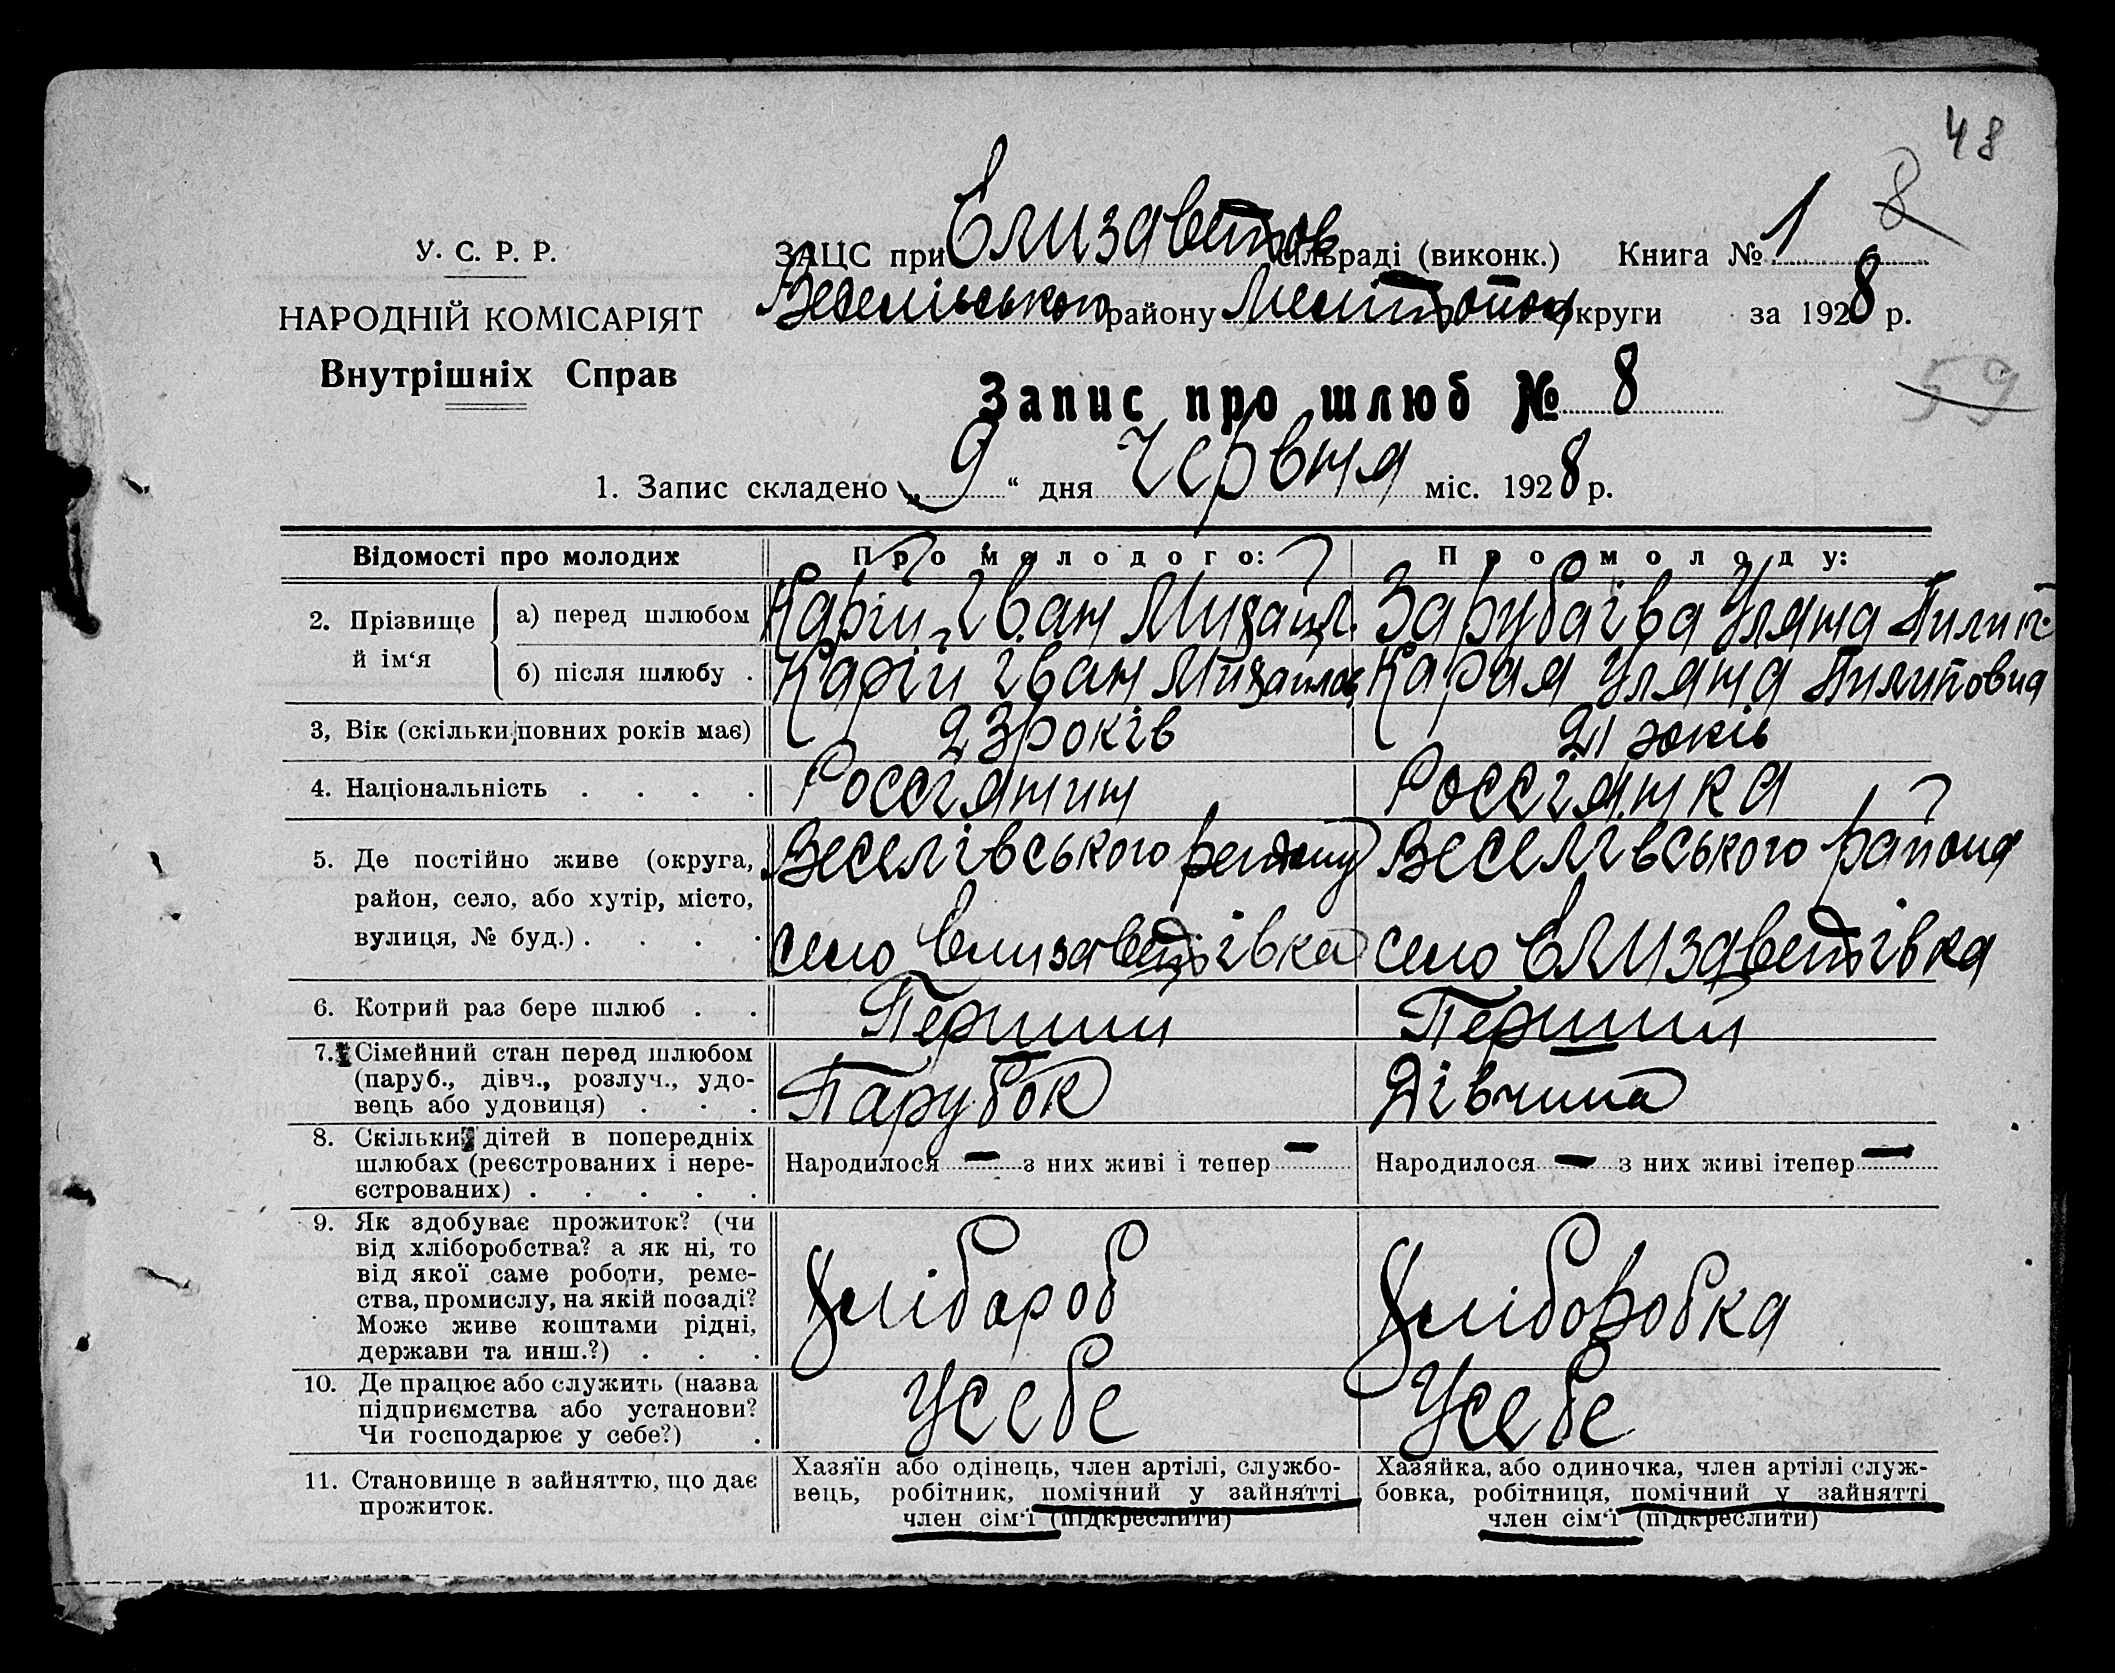 48
8
У. С. Р. Р.
НАРОДНІЙ КОМІСАРІЯТ
Внутрішніх Справ
ЗАЦС при Єлизаветов сільраді (виконк.) Книга № 1
Веселівського району Мелітопол округи за 1928 р.
Запис про шлюб № 8
59
1. Запис складено „9“ дня Червня міс. 1928 р.
Відомості про молодих Про молодого: Про молоду:
2. Прізвище й ім‘я
а) перед шлюбом Карій Іван Михайл. Зарубаєва Уляна Пилип.
б) після шлюбу . Карій Іван Михайлов Карая Уляна Пилиповна
3, Вік (скільки повних років має) 23 років 21 років
4. Національність . . . . Россіянин Россіянка
5. Де постійно живе (округа, Веселівського району Веселівського района
район, село, або хутір, місто,
вулиця, № буд.) . . . . село Єлизаветівка село Єлизаветівка
6. Котрий раз бере шлюб . . Перший Перший
7. Сімейний стан перед шлюбом
(паруб., дівч., розлуч., удо- Парубок Дівчина
вець або удовиця) . . .
8. Скільки дітей в попередніх
шлюбах (реєстрованих і нере- Народилося — з них живі і тепер — Народилося — з них живі ітепер —
єстрованих) . . . . .
9. Як здобуває прожиток? (чи
від хліборобства? а як ні, то
від якої саме роботи, реме-
ства, промислу, на якій посаді? Хлібороб Хліборобка
Може живе коштами рідні,
держави та инш.?) . . .
10. Де працює або служить (назва
підприємства або установи? Усебе Усебе
Чи господарює у себе?) .
11. Становище в зайняттю, що дає
прожиток.
Хазяїн або одінець, член артілі, службо-
вець, робітник, помічний у зайнятті
член сім‘ї (підкреслити)
Хазяйка, або одиночка, член артілі служ-
бовка, робітниця, помічний у зайнятті
член сім‘ї (підкреслити)